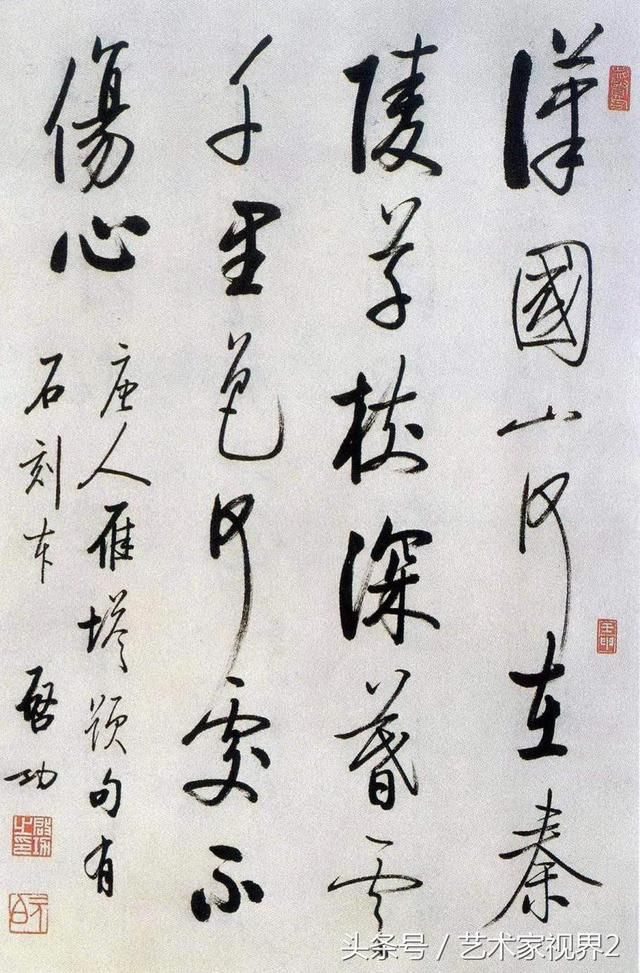 漢國山河在秦
陵草樹深暮雲
千里色何處不
傷心
唐人雁塔題句有
石刻本
啓功
啟功之印
元白
头条号／艺术家视界2